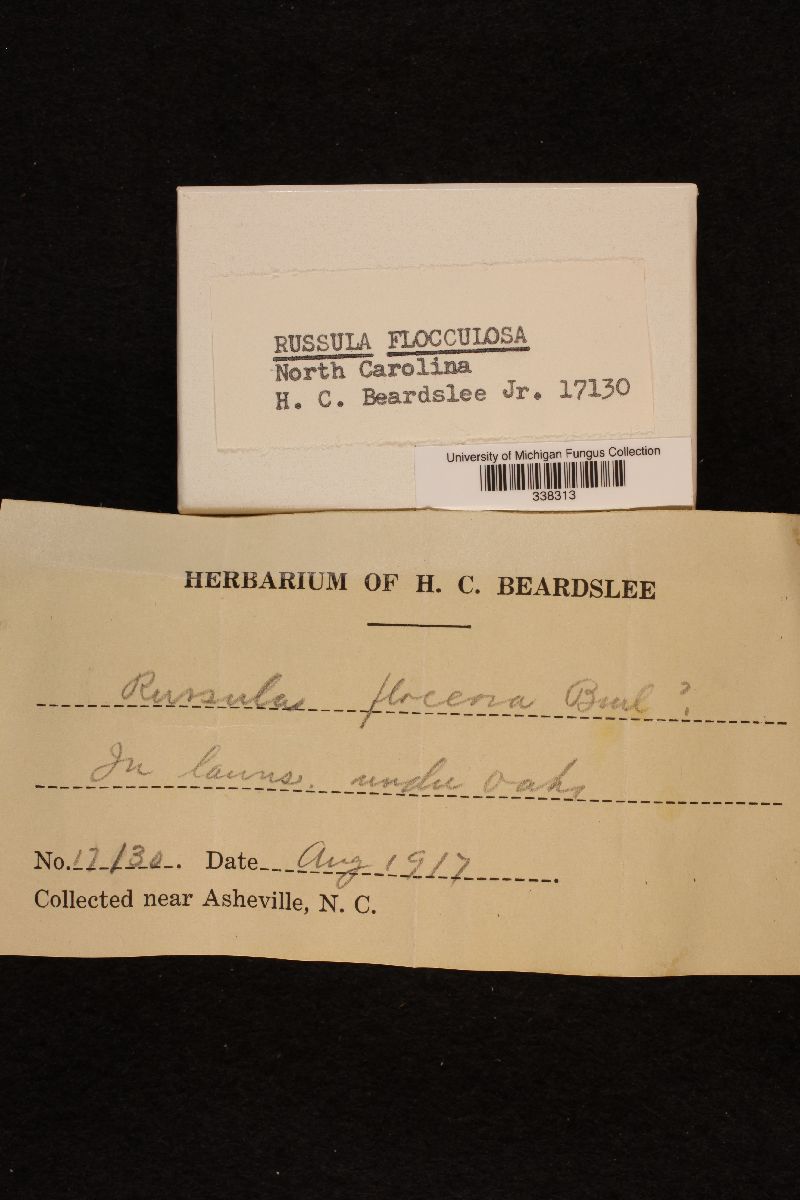 RUSSULA FLOCCULOSA
North Carolina
H. C. Beardslee Jr. 17130
University of Michigan Fungus Collection
338313
HERBARIUM OF H. C. BEARDSLEE
Russula floccosa Burl ?
In lawns. under oaks
No. 17130. Date Aug 1917.
Collected near Asheville, N. C.